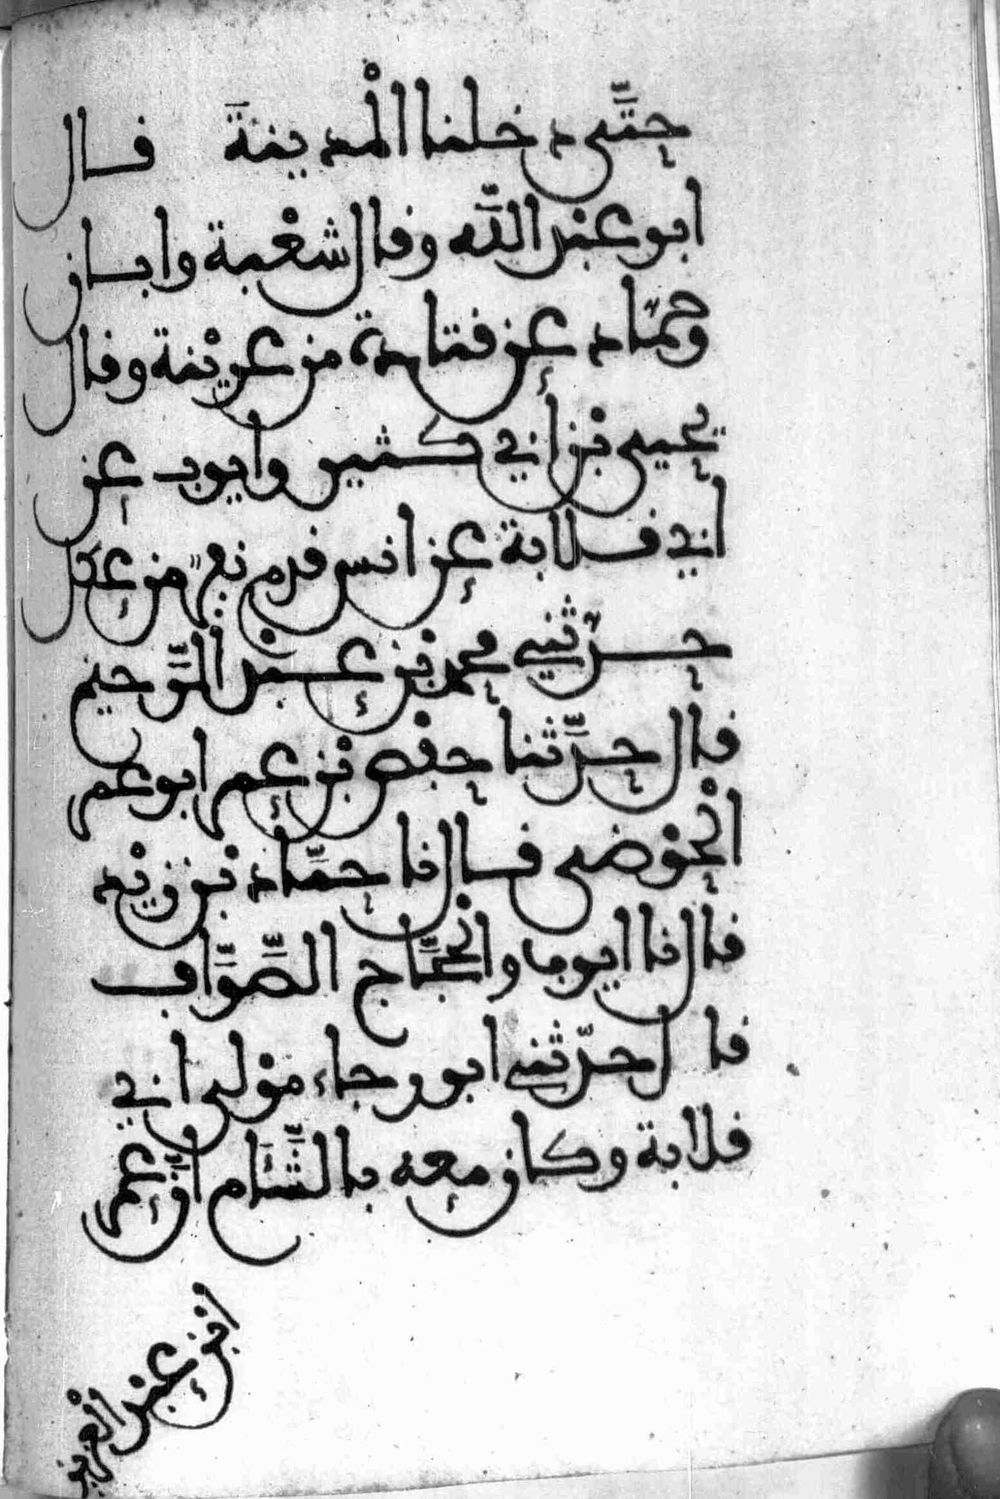 حتَّى دخلنا الْمدينة قال
ابو عبْد اللَّه وقال شعْبة وابان
وحمّاد عن قتادة من عريْنة وقال
يحيى بْن ابي كثير وايوب عن
ابي قلابة عن انس قدم نفر من عكل
حدّثني محمد بْن عبْد الرَّحيم
قال حدَّثنا حفْص بْن عمر ابو عمر
الْحوْضى قال نا حمَّاد بْن زيْد
قال نا ايوب والْحجَّاج الصَّوَّاف
قال حدّثني ابو رجاء موْلى ابي
قلابة وكان معه بالشَّام أنَّ عمر
بْن عبْد الْعزيز